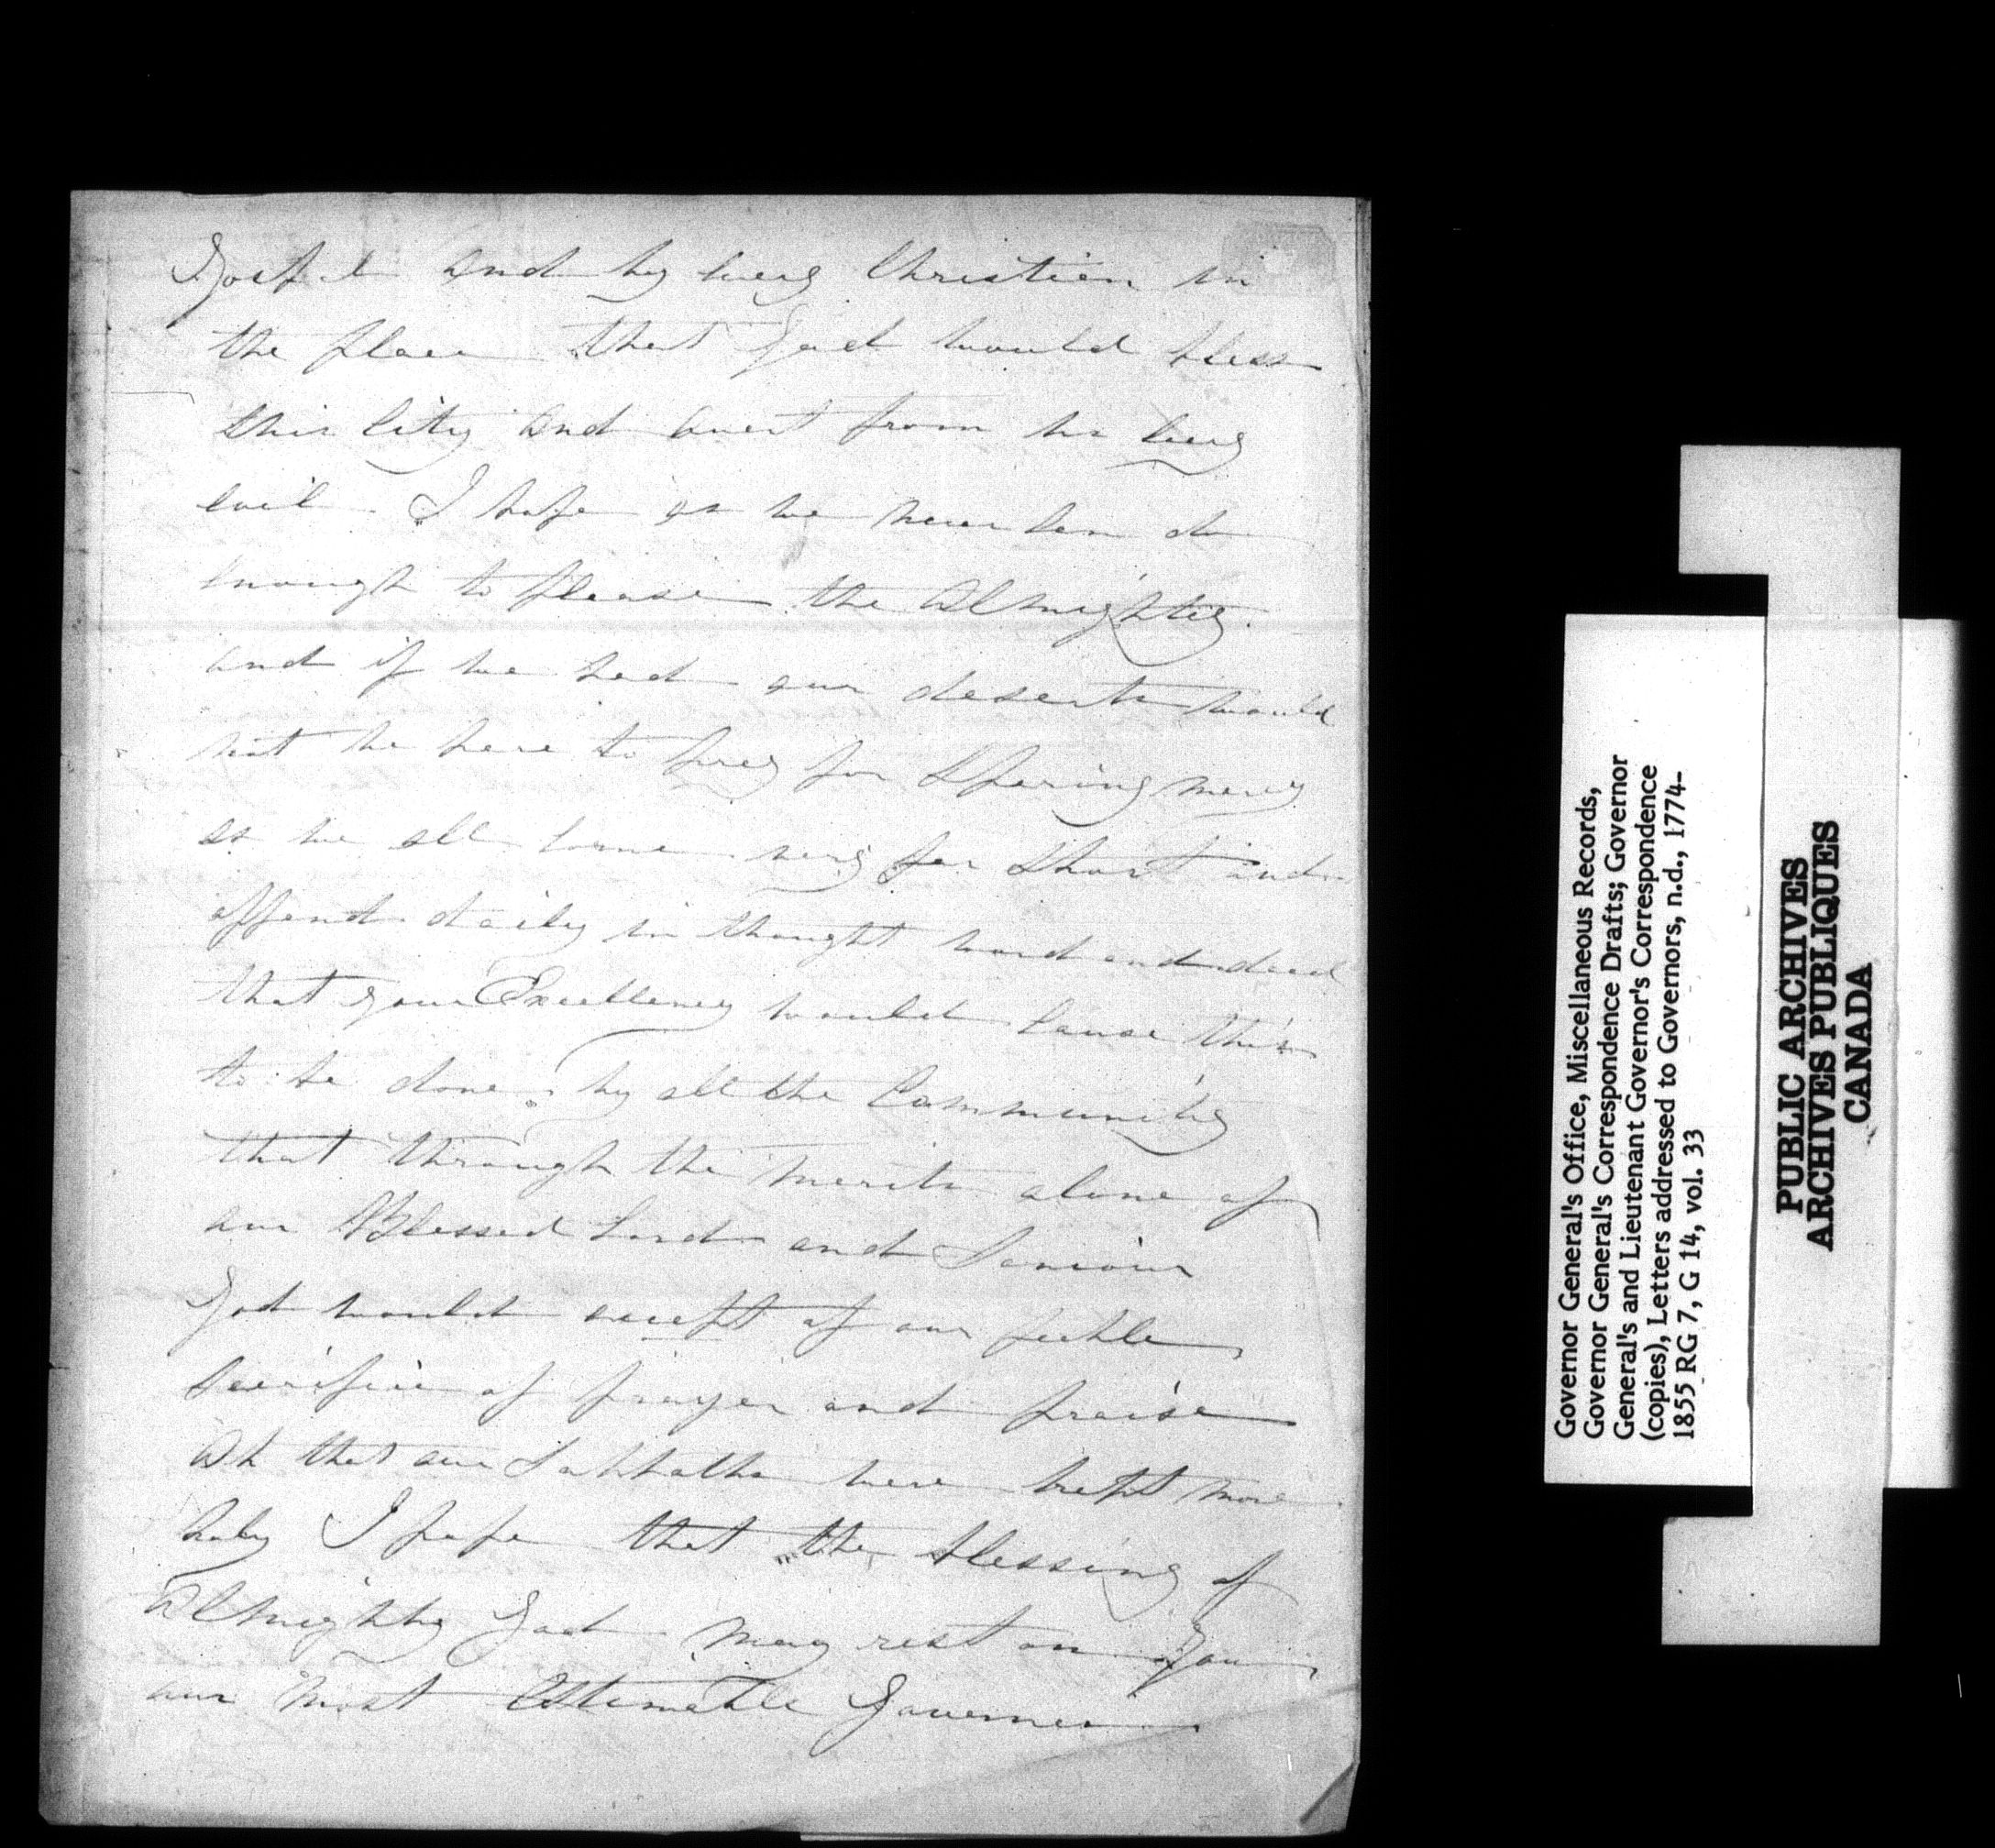 Gospel and by every Christian in
the place that God would bless
this City and avert from us every
evil I hope as we never can do
enough to please the Almighty.
and if we had our deserts would
not be here to pray for Sparing mercy
as we all come very far short and
offend daily in thought word and deed
that your Excellency would cause this
to be done by all the Community
that through the merits alone of
our Blessed Lord and Saviour
God would accept of our feeble
Sacrifice of prayer and praise
Oh that our Sabbaths were kept more
holy I hope that the blessing of
Almighty God may rest on you
our most Estimable Governor
Governor General's Office, Miscellaneous Records,
Governor General's Correspondence Drafts; Governor
General's and Lieutenant Governor's Correspondence
(copies), Letters addressed to Governors, n.d., 1774-
1855 RG 7, G 14, vol. 33
PUBLIC ARCHIVES
ARCHIVES PUBLIQUES
CANADA